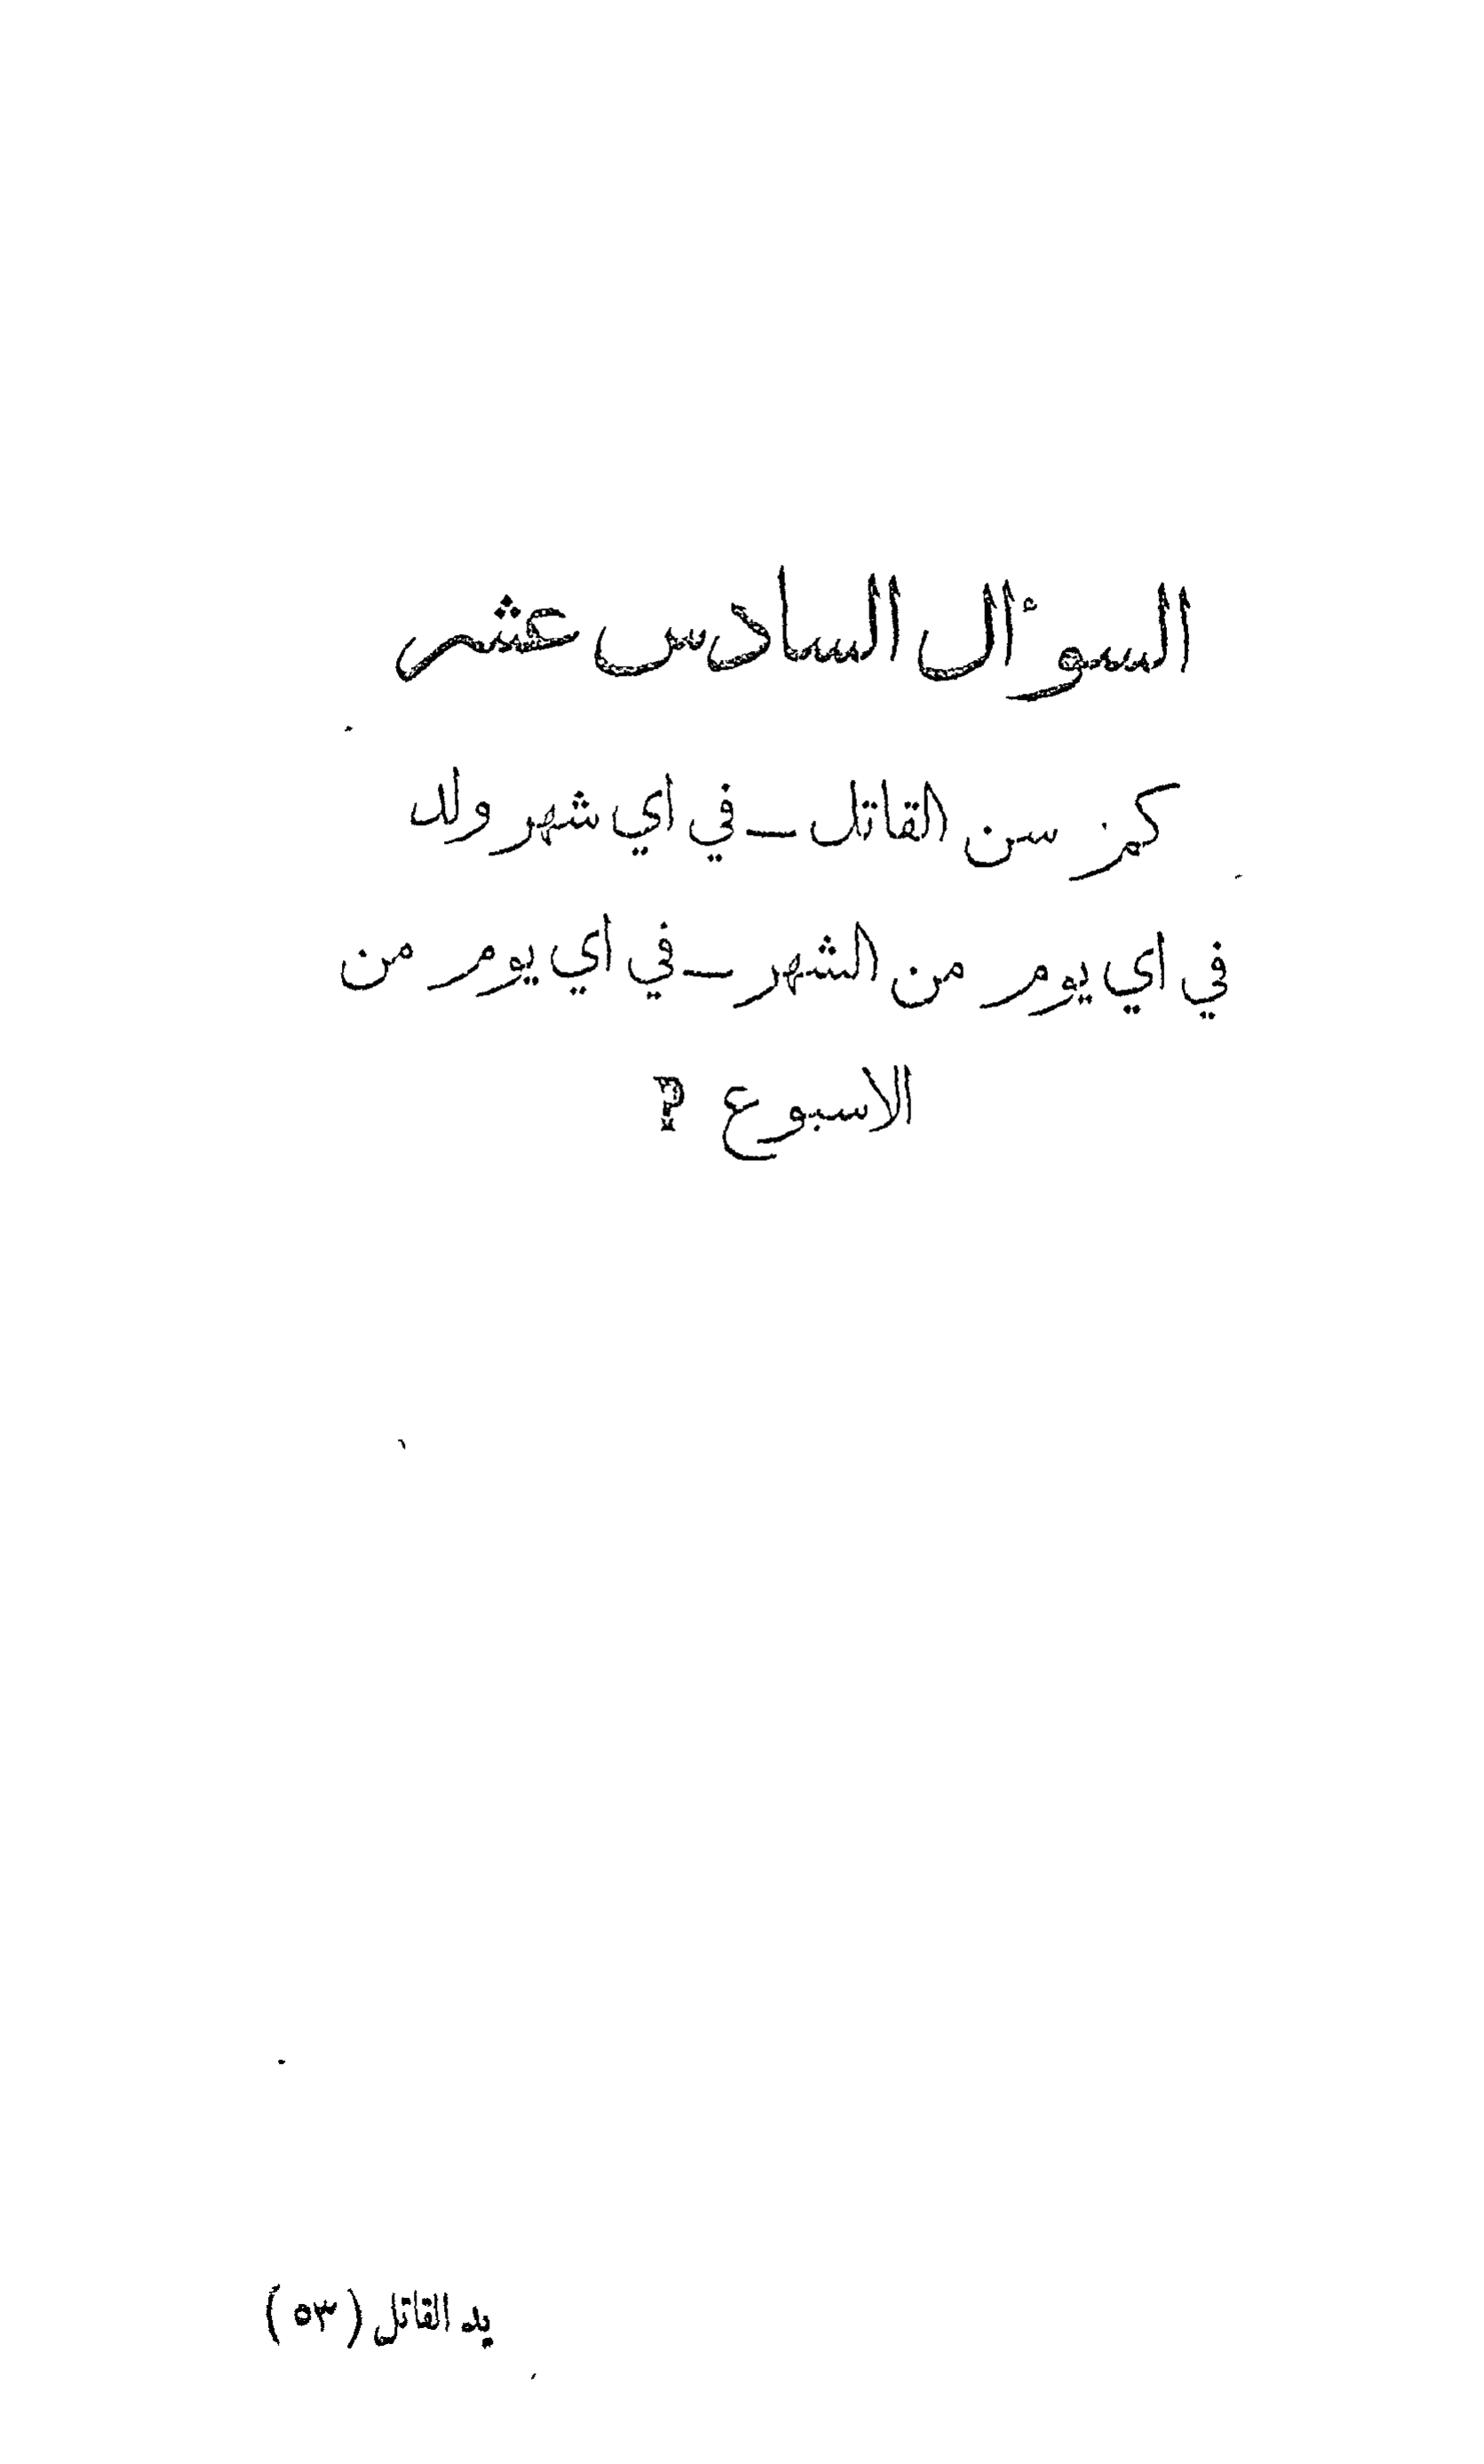 السؤال السادس عشر
كم سن القاتل ــ في اي شهر ولد
في اي يوم من الشهر ــ في اي يوم من
الاسبوع ؟
يد القاتل ( ٥٣ )